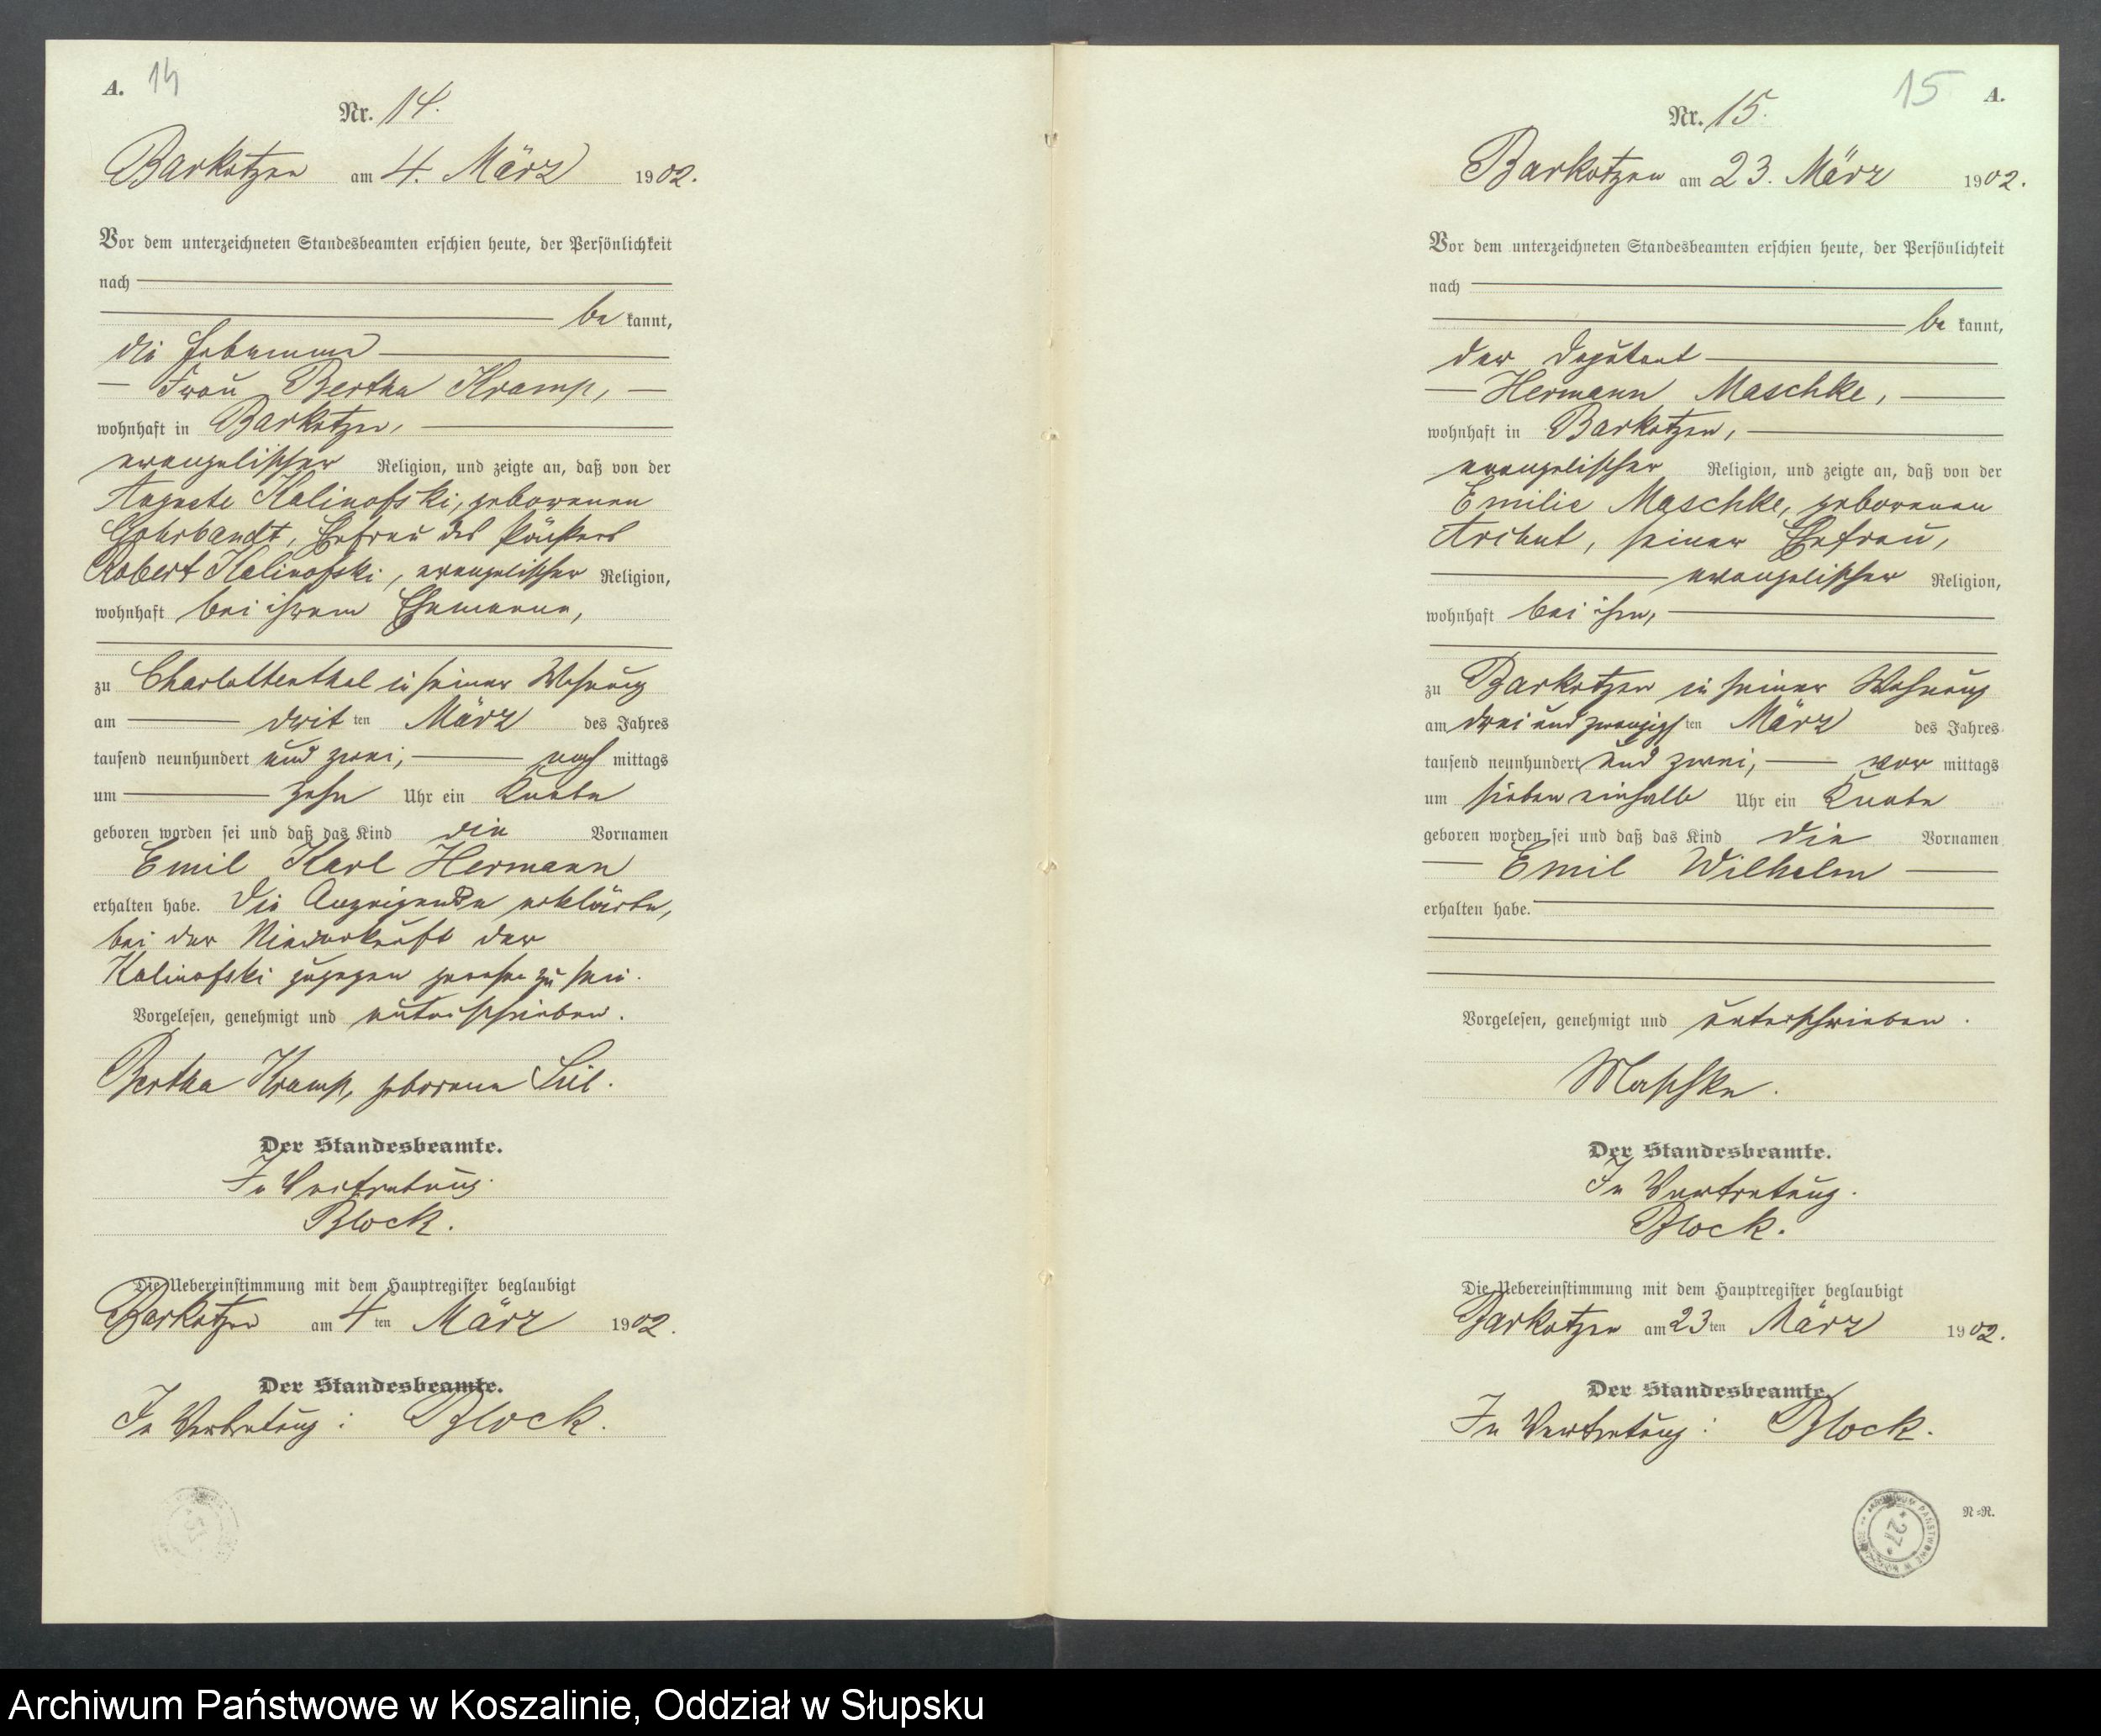 A. 14
Nr. 14.
Barkotzen am 4. März 1902.
Vor dem unterzeichneten Standesbeamten erschien heute, der Persönlichkeit
nach
be kannt,
die Hebamme
Frau Bertha Kramp,
wohnhaft in Barkotzen,
evangelischer Religion, und zeigte an, daß von der
Auguste Kalinofski, geborenen
Gohrbandt, Ehefrau des
Robert Kalinofski, evangelischer Religion,
wohnhaft bei ihrem Ehemanne,
zu Charlottenthal in seiner Wohnung
am drit ten März des Jahres
tausend neunhundert und zwei, nach mittags
um zehn Uhr ein Knabe
geboren worden sei und daß das Kind die Vornamen
Emil Karl Hermann
erhalten habe. Die Anzeigende erklärte,
bei der Niederkunft der
Kalinofski zugegen gewesen zu sein.
Vorgelesen, genehmigt und unterschrieben.
Bertha Kramp, geborene
Der Standesbeamte.
In Vertretung.
Block.
Die Uebereinstimmung mit dem Hauptregister beglaubigt
Barkotzen am 4 ten März 1902.
Der Standesbeamte.
In Vertretung: Block.
15 A.
Nr. 15.
Barkotzen am 23. März 1902.
Vor dem unterzeichneten Standesbeamten erschien heute, der Persönlichkeit
nach
be kannt,
der Deputant
Hermann Maschke,
wohnhaft in Barkotzen,
evangelischer Religion, und zeigte an, daß von der
Emilie Maschke, geborenen
seiner Ehefrau,
evangelischer Religion,
wohnhaft bei ihm,
zu Barkotzen in seiner Wohnung
am drei und zwanzigs ten März des Jahres
tausend neunhundert und zwei, vor mittags
um sieben einhalb Uhr ein Knabe
geboren worden sei und daß das Kind die Vornamen
Emil Wilhelm
erhalten habe.
Vorgelesen, genehmigt und unterschrieben.
Maschke.
Der Standesbeamte.
In Vertretung.
Block.
Die Uebereinstimmung mit dem Hauptregister beglaubigt
Barkotzen am 23 ten März 1902.
Der Standesbeamte.
In Vertretung: Block.
*27*
N=R.
Archiwum Państwowe w Koszalinie, Oddział w Słupsku